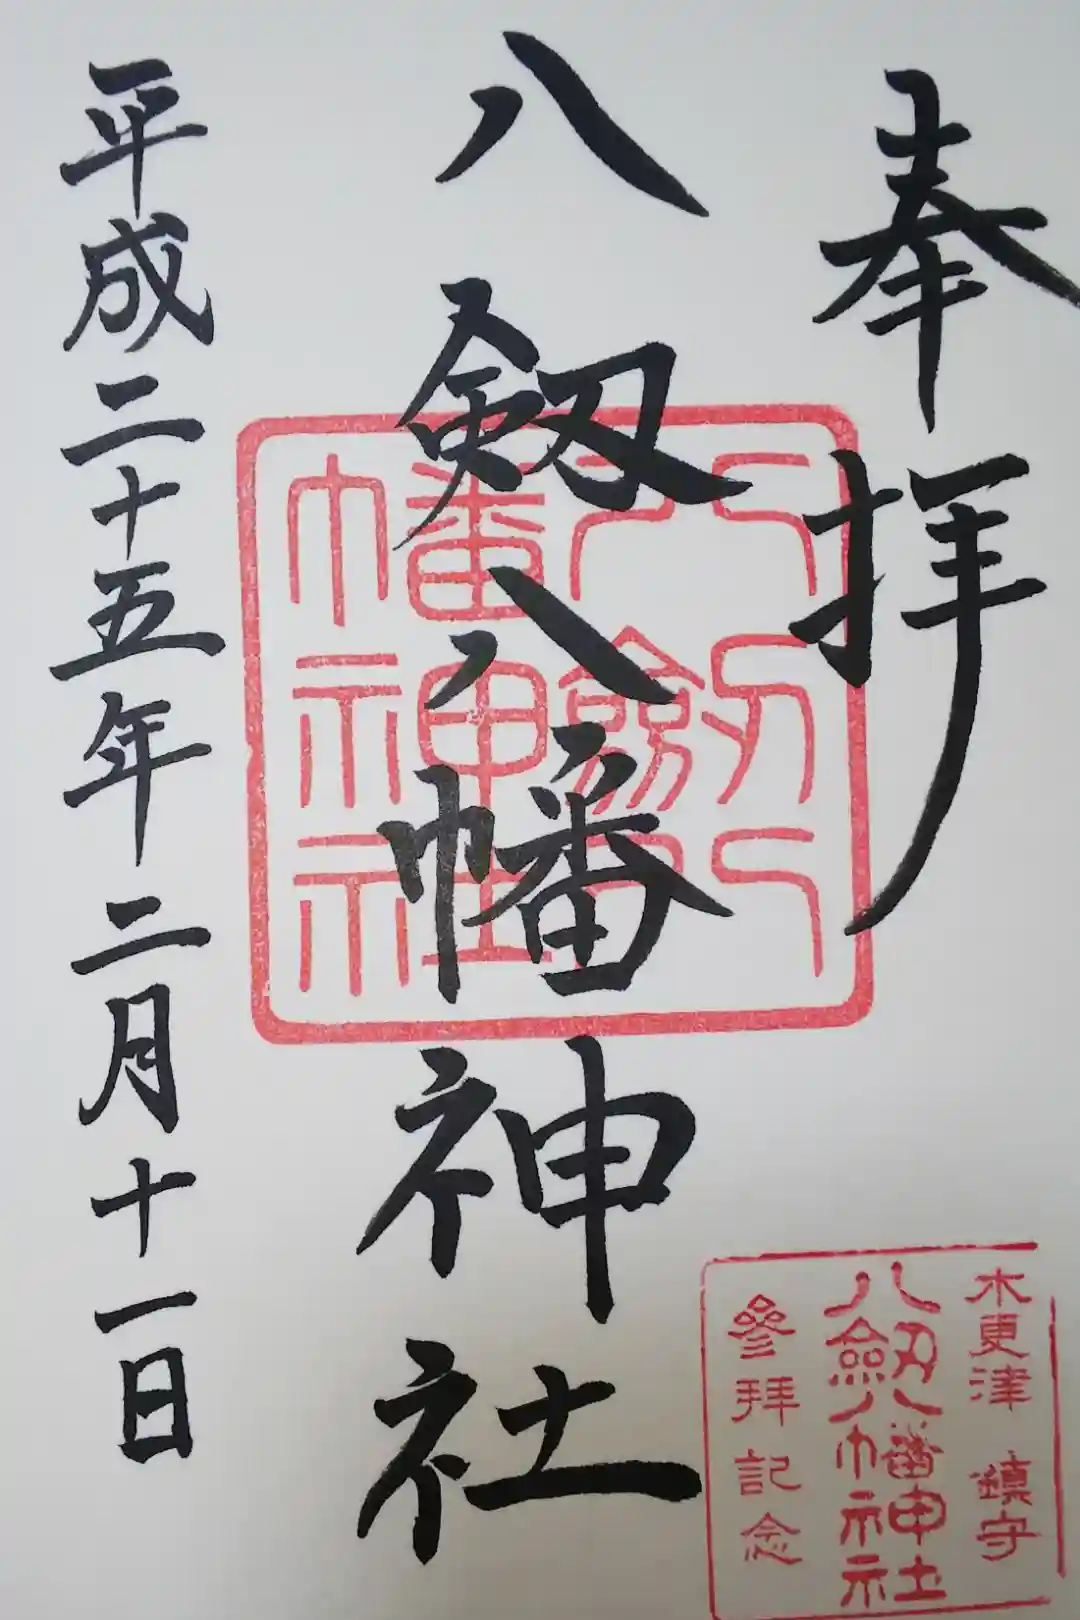 奉拝
八剱八幡神社
平成二十五年二月十一日
八剱八
幡神社
木更津 鎮守
八剱八幡神社
參拝記念